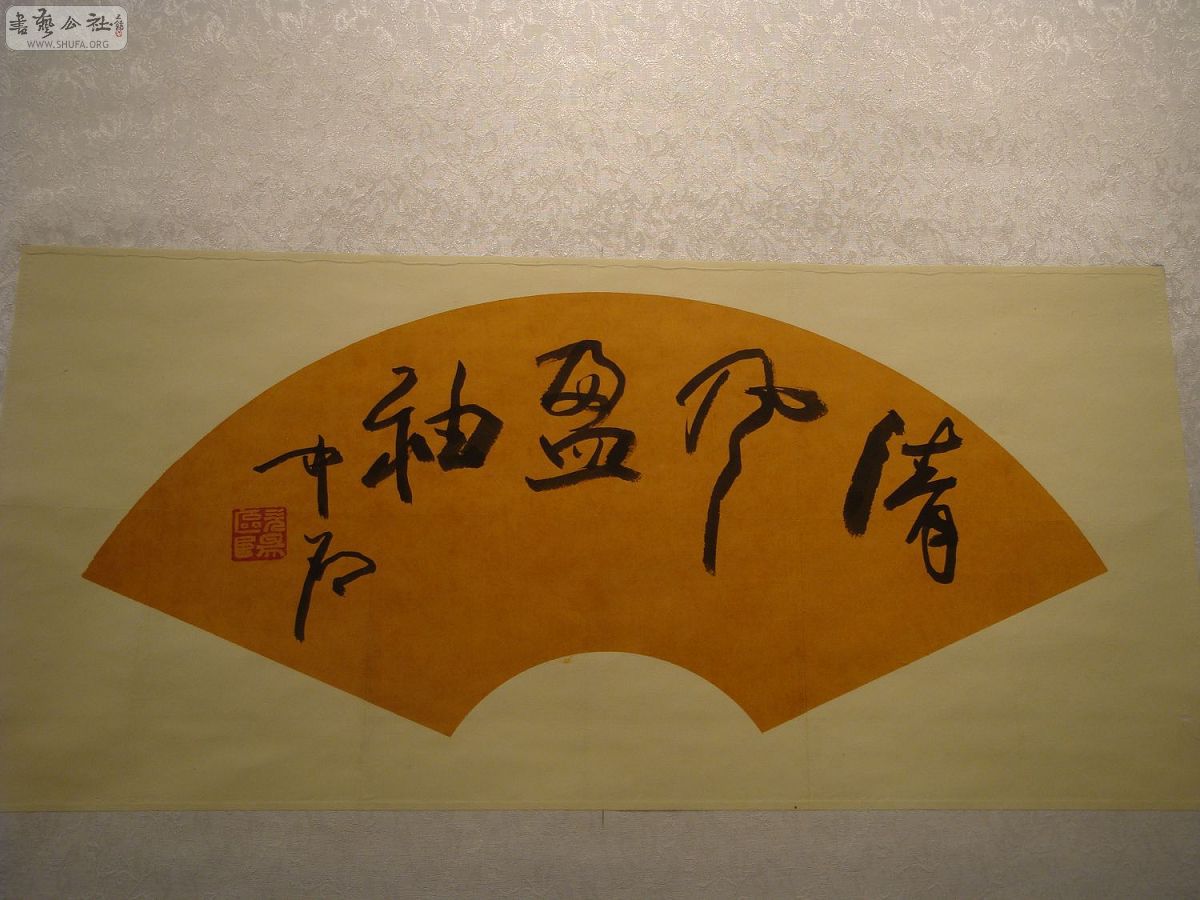 書藝公社
WWW.SHUFA.ORG
清风盈袖
中石